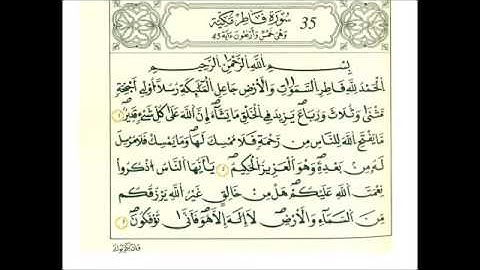 سُورَةُ فَاطِرٍ مَكِّيَّةٌ 35
وَهْيَ خَمْسٌ وَأَرْبَعُونَ ءَايَةً 45
بِسْمِ اللَّهِ الرَّحْمَٰنِ الرَّحِيمِ
الْحَمْدُ لِلَّهِ فَاطِرِ السَّمَٰوَٰتِ وَالْأَرْضِ جَاعِلِ الْمَلَٰئِكَةِ رُسُلًا أُوْلِي أَجْنِحَةٍ
مَثْنَىٰ وَثُلَٰثَ وَرُبَٰعَ يَزِيدُ فِي الْخَلْقِ مَا يَشَاءُ إِنَّ اللَّهَ عَلَىٰ كُلِّ شَيْءٍ قَدِيرٌ
مَا يَفْتَحِ اللَّهُ لِلنَّاسِ مِن رَّحْمَةٍ فَلَا مُمْسِكَ لَهَا وَمَا يُمْسِكْ فَلَا مُرْسِلَ
لَهُ مِن بَعْدِهِ وَهُوَ الْعَزِيزُ الْحَكِيمُ يَٰأَيُّهَا النَّاسُ اذْكُرُوا
نِعْمَتَ اللَّهِ عَلَيْكُمْ هَلْ مِنْ خَٰلِقٍ غَيْرُ اللَّهِ يَرْزُقُكُم
مِّنَ السَّمَاءِ وَالْأَرْضِ لَا إِلَٰهَ إِلَّا هُوَ فَأَنَّىٰ تُؤْفَكُونَ